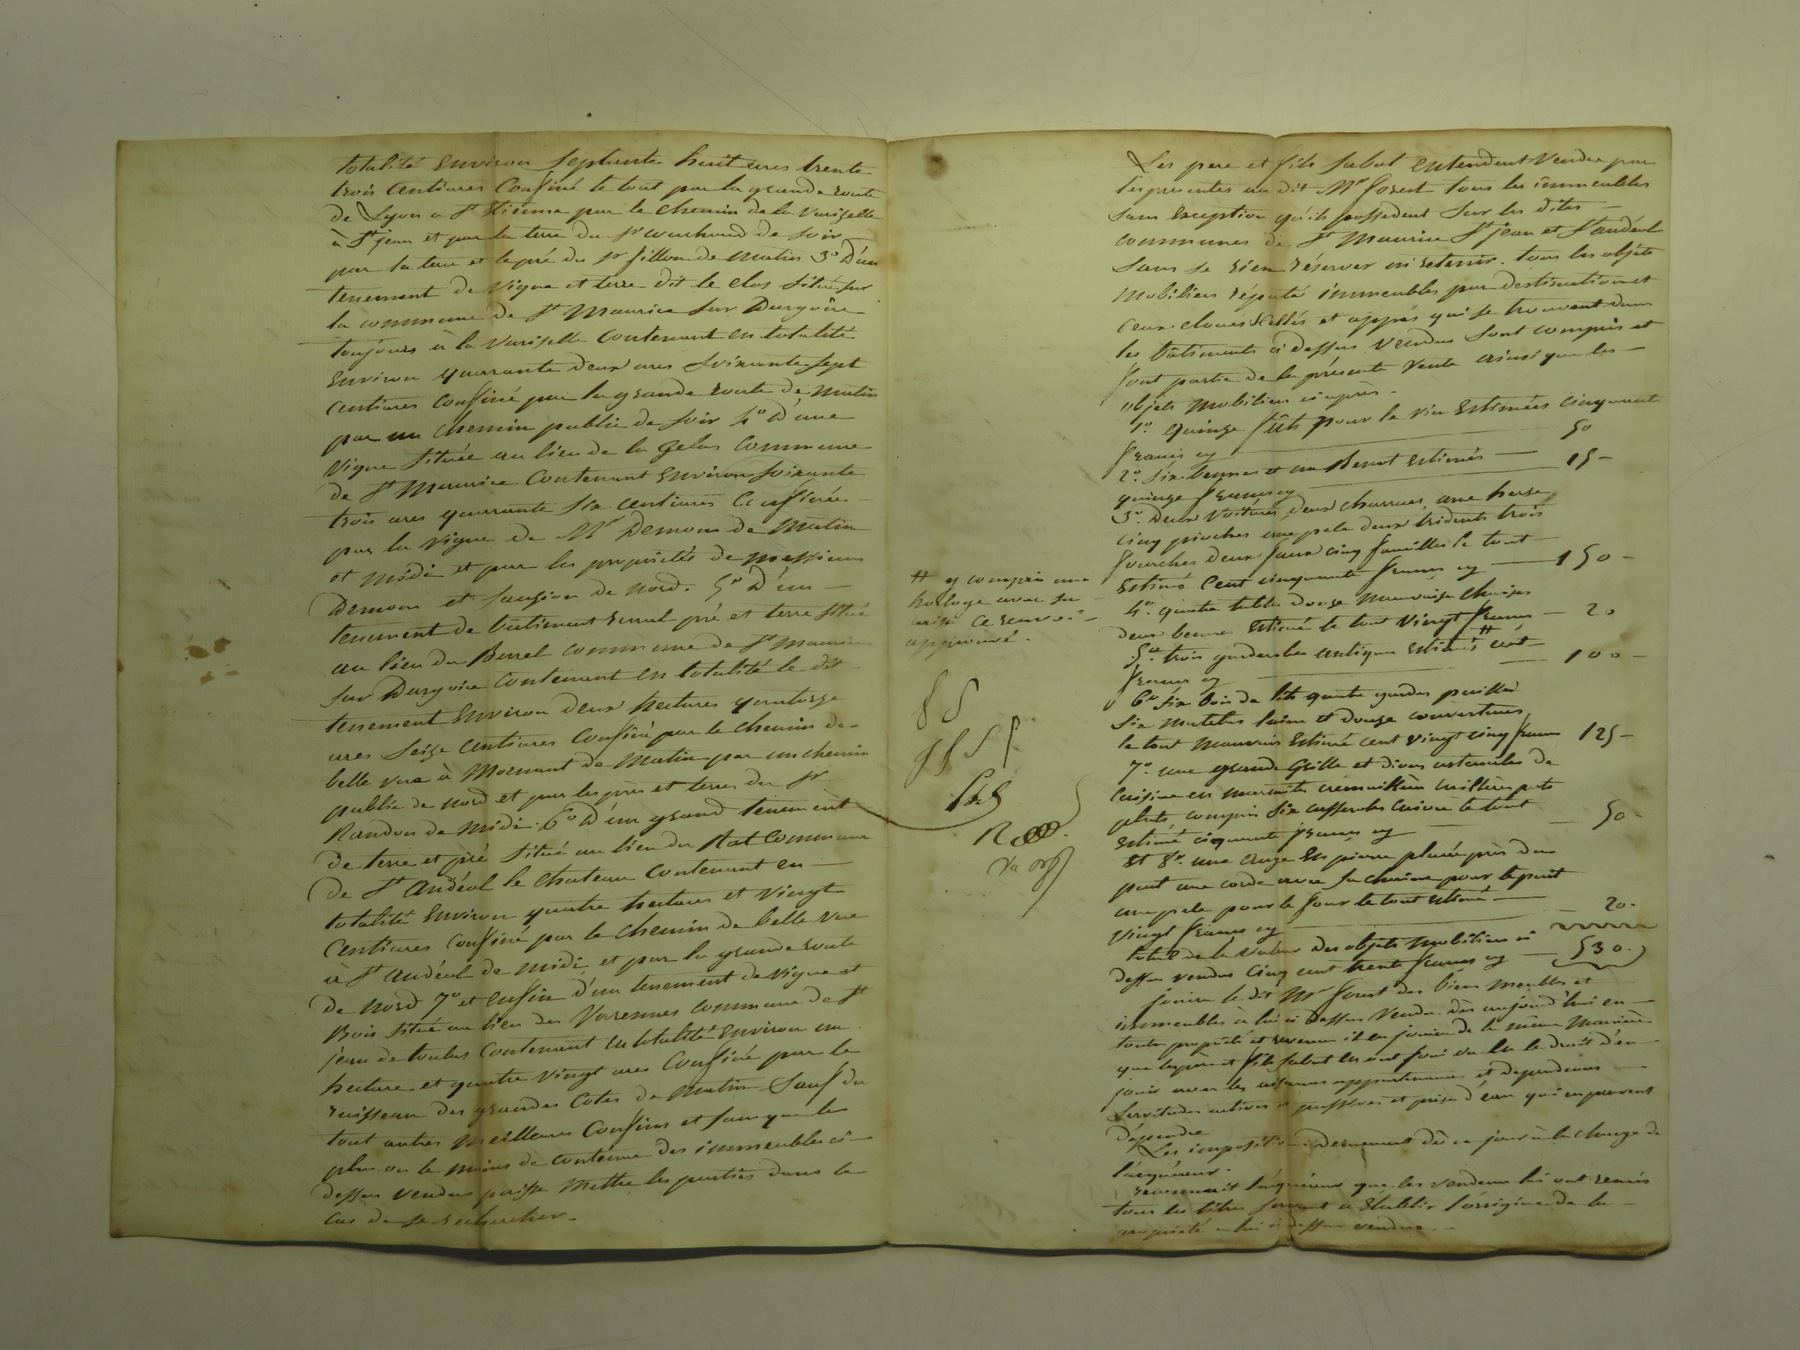 totalité environ septante huit ares trente
trois centiares Confiné le tout par la grande route
de Lyon a St Etienne par le chemin de la Varizelle
à St jean et par la terre du sr couchoud de soir
par la terre et le pré du sr fillon de matin 3° D'un
tenement de Vigne et terre dit le clos situé sur
la commune de St Maurice sur Dargoire
toujours à la Varizelle Contenant en totalité
Environ quarante deux ares soixante sept
centiares confiné par la grande route de matin
par un chemin public de soir 4° d'une
Vigne située au lieu de la Commune
de St Maurice Contenant Environ soixante
trois ares quarante six centiares Confinée
par la vigne de Mr Demons de Matin
et Midi et par les propriétés de messieurs
Demons et de nord. 5° D'un
tenement de bâtiment pré et terre situé
au lieu du Berrel commune de St Maurice
sur Dargoire Contenant en totalité le dit
tenement Environ deux hectares quatorze
ares seize centiares Confiné par le chemin de
belle vue à Mornant de Matin par un chemin
public de nord et par les prés et terres du sr
Randon de Midi. 6° D'un grand tenement
De terre et pré situé au lieu du Rat Commune
de St Andéol le chateau Contenant en
totalité Environ quatre hectares et vingt
Centiares confiné par le chemin de belle vue
à St andéol de midi et par la grande route
de Nord 7° et enfin d'un tenement de vigne et
Bois situé au lieu des Varennes commune de St
jean de toulas Contenant en totalité environ un
hectare et quatre vingt ares Confiné par le
ruisseau des grandes Cotes de Matin Sauf de
tout autres Meilleurs Confins et sans que le
plus ou le moins de contenue des immeubles ci-
dessus vendus puisse Mettre les parties dans le
cas de se rechercher.
# y compris une
horloge avec sa
caisse Ce renvoi
approuvé.
Les pere et fils sabot entendent Vendre par
les presentes au dit Mr forest tous les immeubles
sans exception qu'ils possedent sur les dites
communes de St Maurice St jean et St andéol
sans se rien réserver ni retenir. tous les objets
Mobiliers réputé immeubles par destination et
ceux cloués scellés et appos qui se trouvent dans
les bâtiments ci dessus vendus sont compris et
font partie de la présente Vente ainsi que les
objets Mobiliers ci après.
1° quinze fûts pour le vin Estimées cinquante
francs cy 50
2° six bennes et un Benot estimés
quinze francs cy 15
3° Deux Voitures, deux charrues, une herse
cinq pioches une pele deux tridents trois
fourches deux faux cinq faucilles le tout
estimé Cent cinquante francs cy 150
4° quatre tables douze Mauvaise chaises
deux benne estimé le tout vingt francs 20
5° trois garderobes antiques estimés # cent
francs cy 100
6° six bois de lits quatre gardes pailles
six matelas laine et douze couvertures
le tout Mauvais Estimé cent vingt cinq francs 125
7° une grande Grille et divers ustensiles de
cuisine en marmite cremaillère cuillers pots
plats compris six casseroles cuivre le tout
estimé cinquante francs cy 50
Et 8° une auge en pierre placée près du
puit une corde avec sa chaine pour le puit
une pele pour le four le tout estimé
vingt francs cy 20
total de la valeur des objets Mobiliers ci
dessus vendus cinq cent trente francs cy 530
jouira le dit Mr forest des biens meubles et
immeubles à lui ci dessus Vendu dès aujourd'hui en
toute propriété et revenu il en jouira de la même Manière
que les père et fils sabot en ont joui ou eu le droit d'en
jouir avec les aisances appartenances et dependances
servitudes actives et passives et prise d'eau qui en peuvent
dépendre
Les impositions demeurent dès ce jour à la charge de
l'acquéreur.
reconnait l'acquéreur que les vendeurs lui ont remis
tous les titres servant a Etablir l'origine de la
propriété a lui ci dessus vendue.